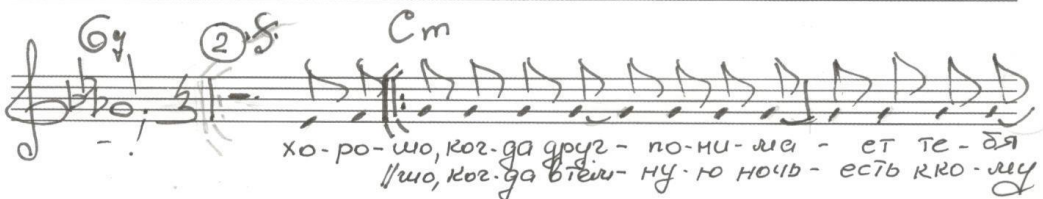 G7 ② 𝄋 Cm
- . хо-ро-шо, ког-да друг- по-ни-ма - ет те-бя
//шо, ког-да втем- ну-ю ночь- есть кко-му